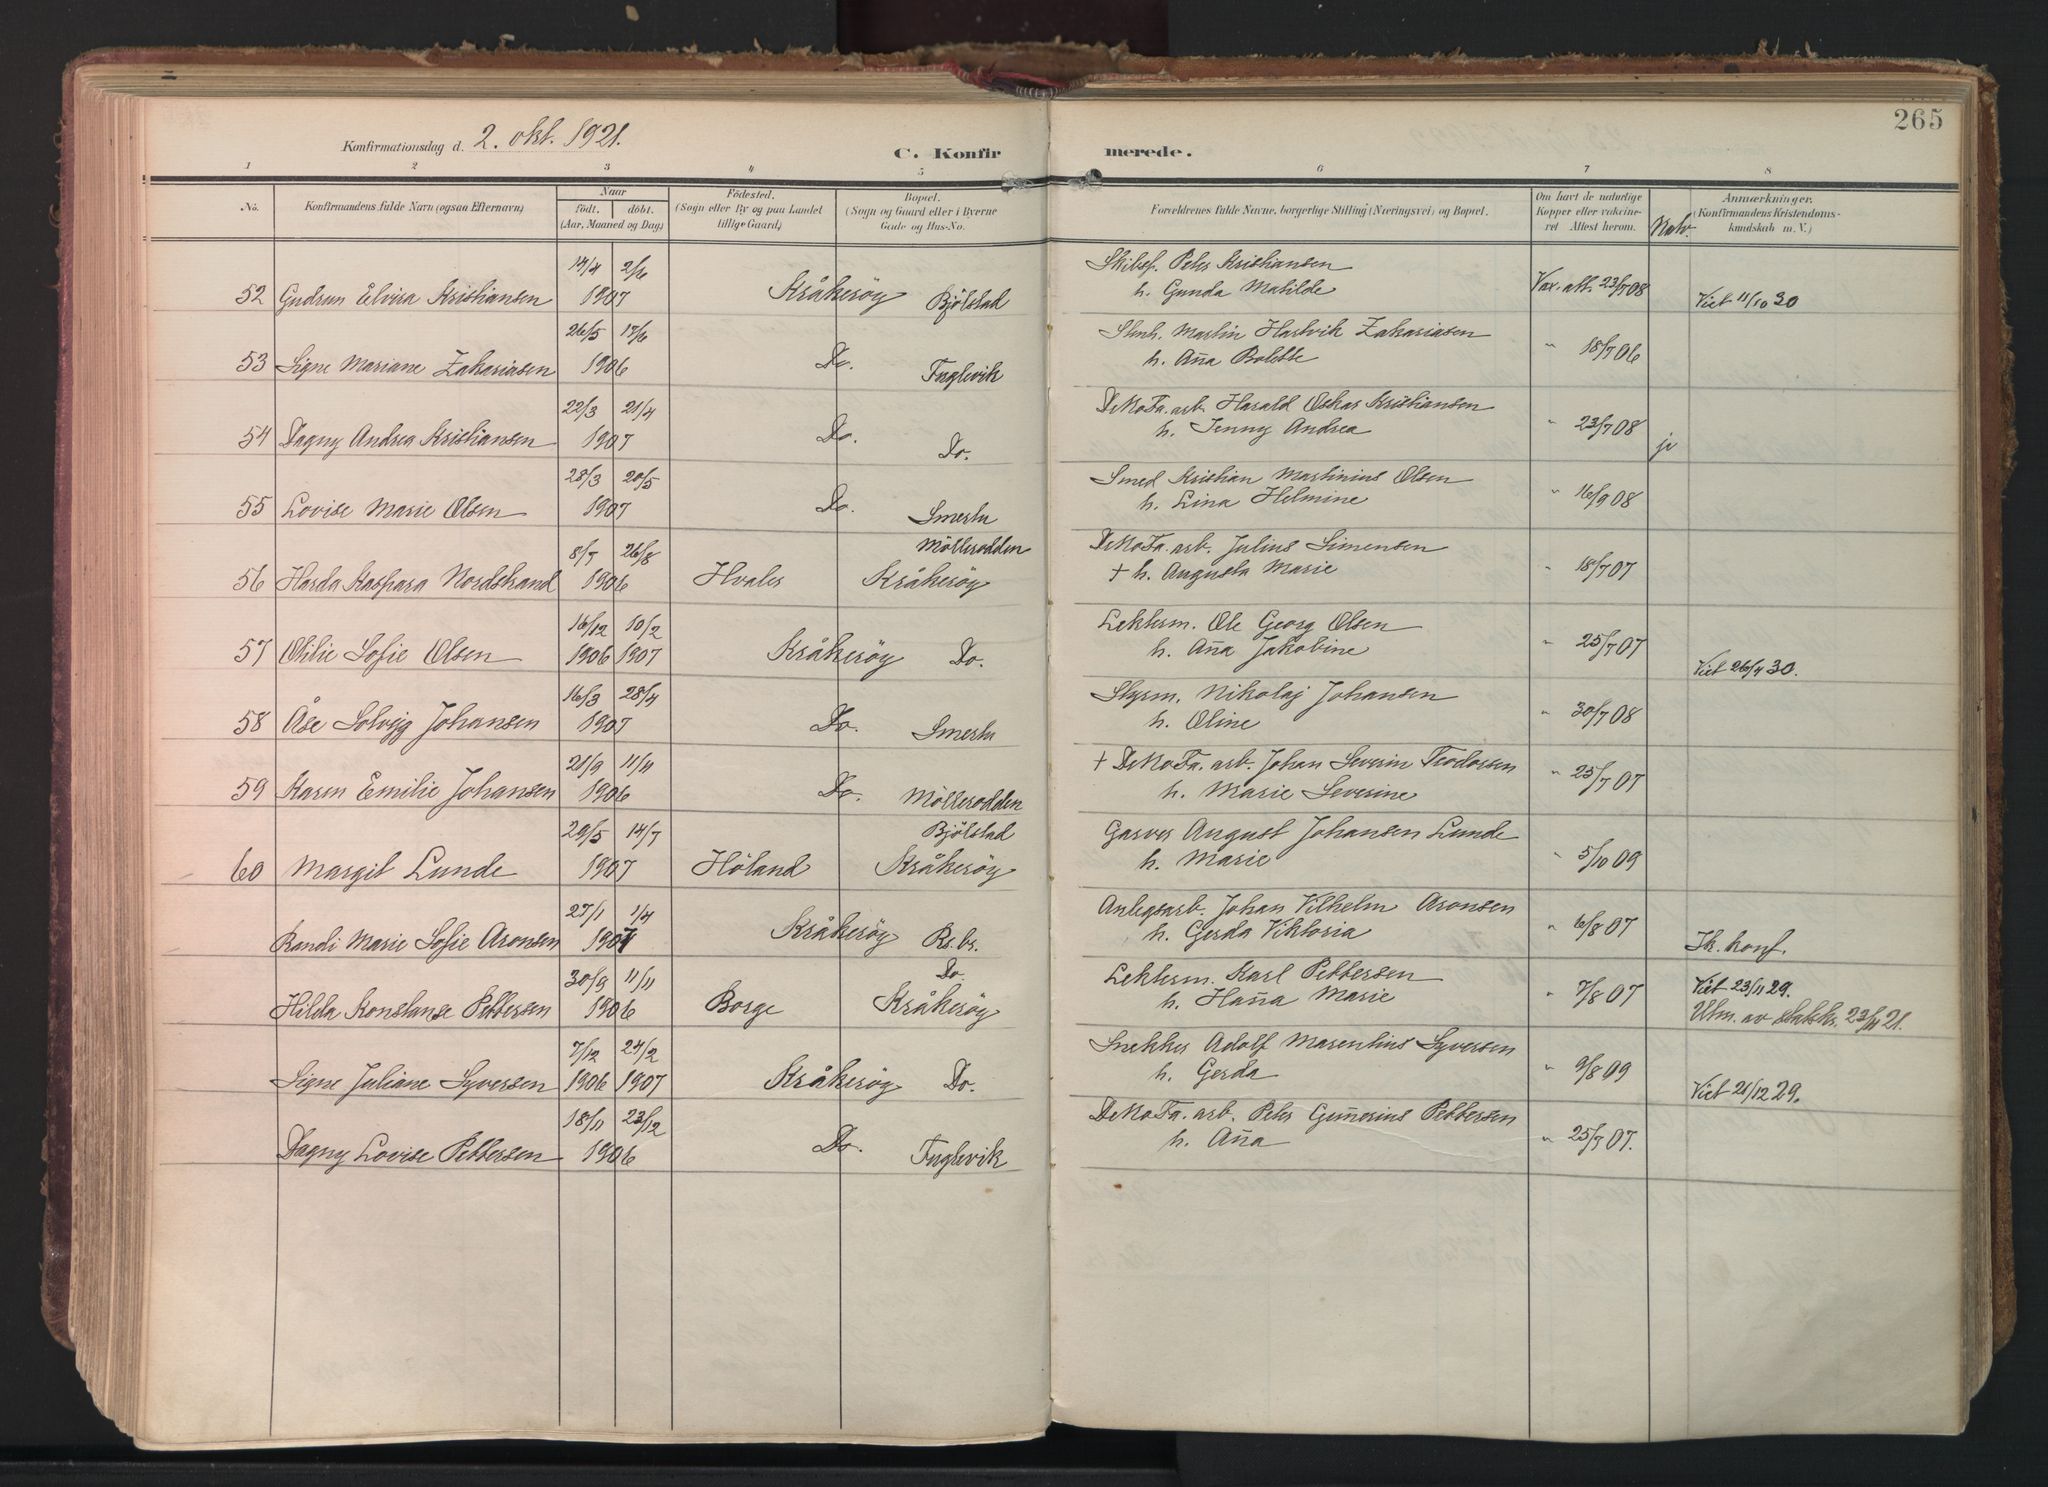 265
Konfirmationsdag d. 2. okt. 1921.
C. Konfirmerede.
1 2 3 4 5 6 7 8
No.
Konfirmandens fulde Navn (ogsaa Efternavn)
Naar
födt. döbt.
(Aar, Maaned og Dag)
Födested.
(Sogn eller By og paa Landet
tillige Gaard)
Bopæl.
(Sogn og Gaard eller i Byerne
Gade og Hus-No.
Forældrenes fulde Navne, borgerlige Stilling (Næringsvei) og Bopæl.
Om havt de naturlige
Kopper eller vakcine-
ret Attest herom.
Natv.
Anmærkninger.
(Konfirmandens Kristendoms-
kundskab m. V.)
14/4 2/6 Skibsf. Peter Kristiansen
52 Gudrun Elvira Kristiansen 1907 Kråkerøy Bjölstad h. Gunda Matilde Vax. att. 23/7 08 Viet 11/10 30
26/5 17/6 Stmh. Martin Hartvik Zakariasen
53 Signe Mariane Zakariasen 1906 Do. Fuglevik h. Aña Bolette " 18/7 06
22/3 21/4 DeNoFa. arb. Harald Oskar Kristiansen
54 Dagny Andrea Kristiansen 1907 Do. Do. h. Jenny Andrea " 23/7 08 je
28/3 20/5 Smed Kristian Martinius Olsen
55 Lovise Marie Olsen 1907 Do. Smertu h. Lina Helmine " 16/9 08
8/7 26/8 Möllerodden DeNoFa. arb. Julius Simensen
56 Harda Kaspara Nordstrand 1906 Hvaler Kråkerøy + h. Augusta Marie " 18/7 07
16/12 10/2 Lekterm. Ole Georg Olsen
57 Otilie Sofie Olsen 1906 1907 Kråkerøy Do. h. Aña Jakobine " 25/7 07 Viet 26/4 30.
16/3 28/4 Styrm. Nikolaj Johansen
58 Åse Solvejg Johansen 1907 Do. Smertu h. Oline " 30/7 08
21/9 11/11 + DeNoFa. arb. Johan Severin Teodorsen
59 Karen Emilie Johansen 1906 Do. Möllerodden h. Marie Severine " 25/7 07
29/5 14/7 Bjölstad Garver August Johansen Lunde
60 Margit Lunde 1907 Höland Kråkerøy h. Marie " 5/10 09
27/1 1/4 Anlegsarb. Johan Vilhelm Aronsen
Randi Marie Sofie Aronsen 1907 Kråkerøy Rs. br. h. Gerda Viktoria " 6/8 07 Ik. konf.
30/9 11/11 Do. Lekterm. Karl Pettersen
Hilda Konstanse Pettersen 1906 Borge Kråkerøy h. Haña Marie " 7/8 07 Viet 23/11 29.
Utm. av statskr. 23/11 21.
7/12 24/2 Snekker Adolf Marentius Syversen
Signe Juliane Syversen 1906 1907 Kråkerøy Do. h. Gerda " 9/8 09 Viet 21/12 29.
18/11 23/12 DeNoFa. arb. Peter Gumerius Pettersen
Dagny Lovise Pettersen 1906 Do. Fuglevik h. Aña " 25/7 07.